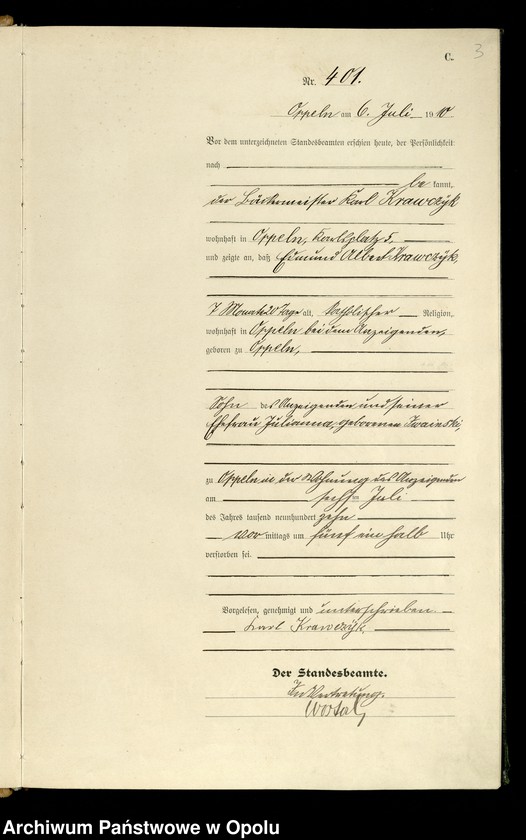 C.
3
Nr. 401.
Oppeln am 6. Juli 1910
Vor dem unterzeichneten Standesbeamten erschien heute, der Persönlichkeit
nach
be kannt,
der Bäckermeister Karl Krawczyk
wohnhaft in Oppeln, Karlsplatz 5,
und zeigte an, daß Edmund Albert Krawczyk,
7 Monate 20 Tage alt, katholischer Religion,
wohnhaft in Oppeln bei dem Anzeigenden,
geboren zu Oppeln,
Sohn des Anzeigenden und seiner
Ehefrau Julianna, geborenen
zu Oppeln in der Wohnung des Anzeigenden
am sechsten Juli
des Jahres tausend neunhundert zehn
vor mittags um fünf ein halb Uhr
verstorben sei.
Vorgelesen, genehmigt und unterschrieben.
Karl Krawczyk
Der Standesbeamte.
In Vertretung.
Archiwum Państwowe w Opolu